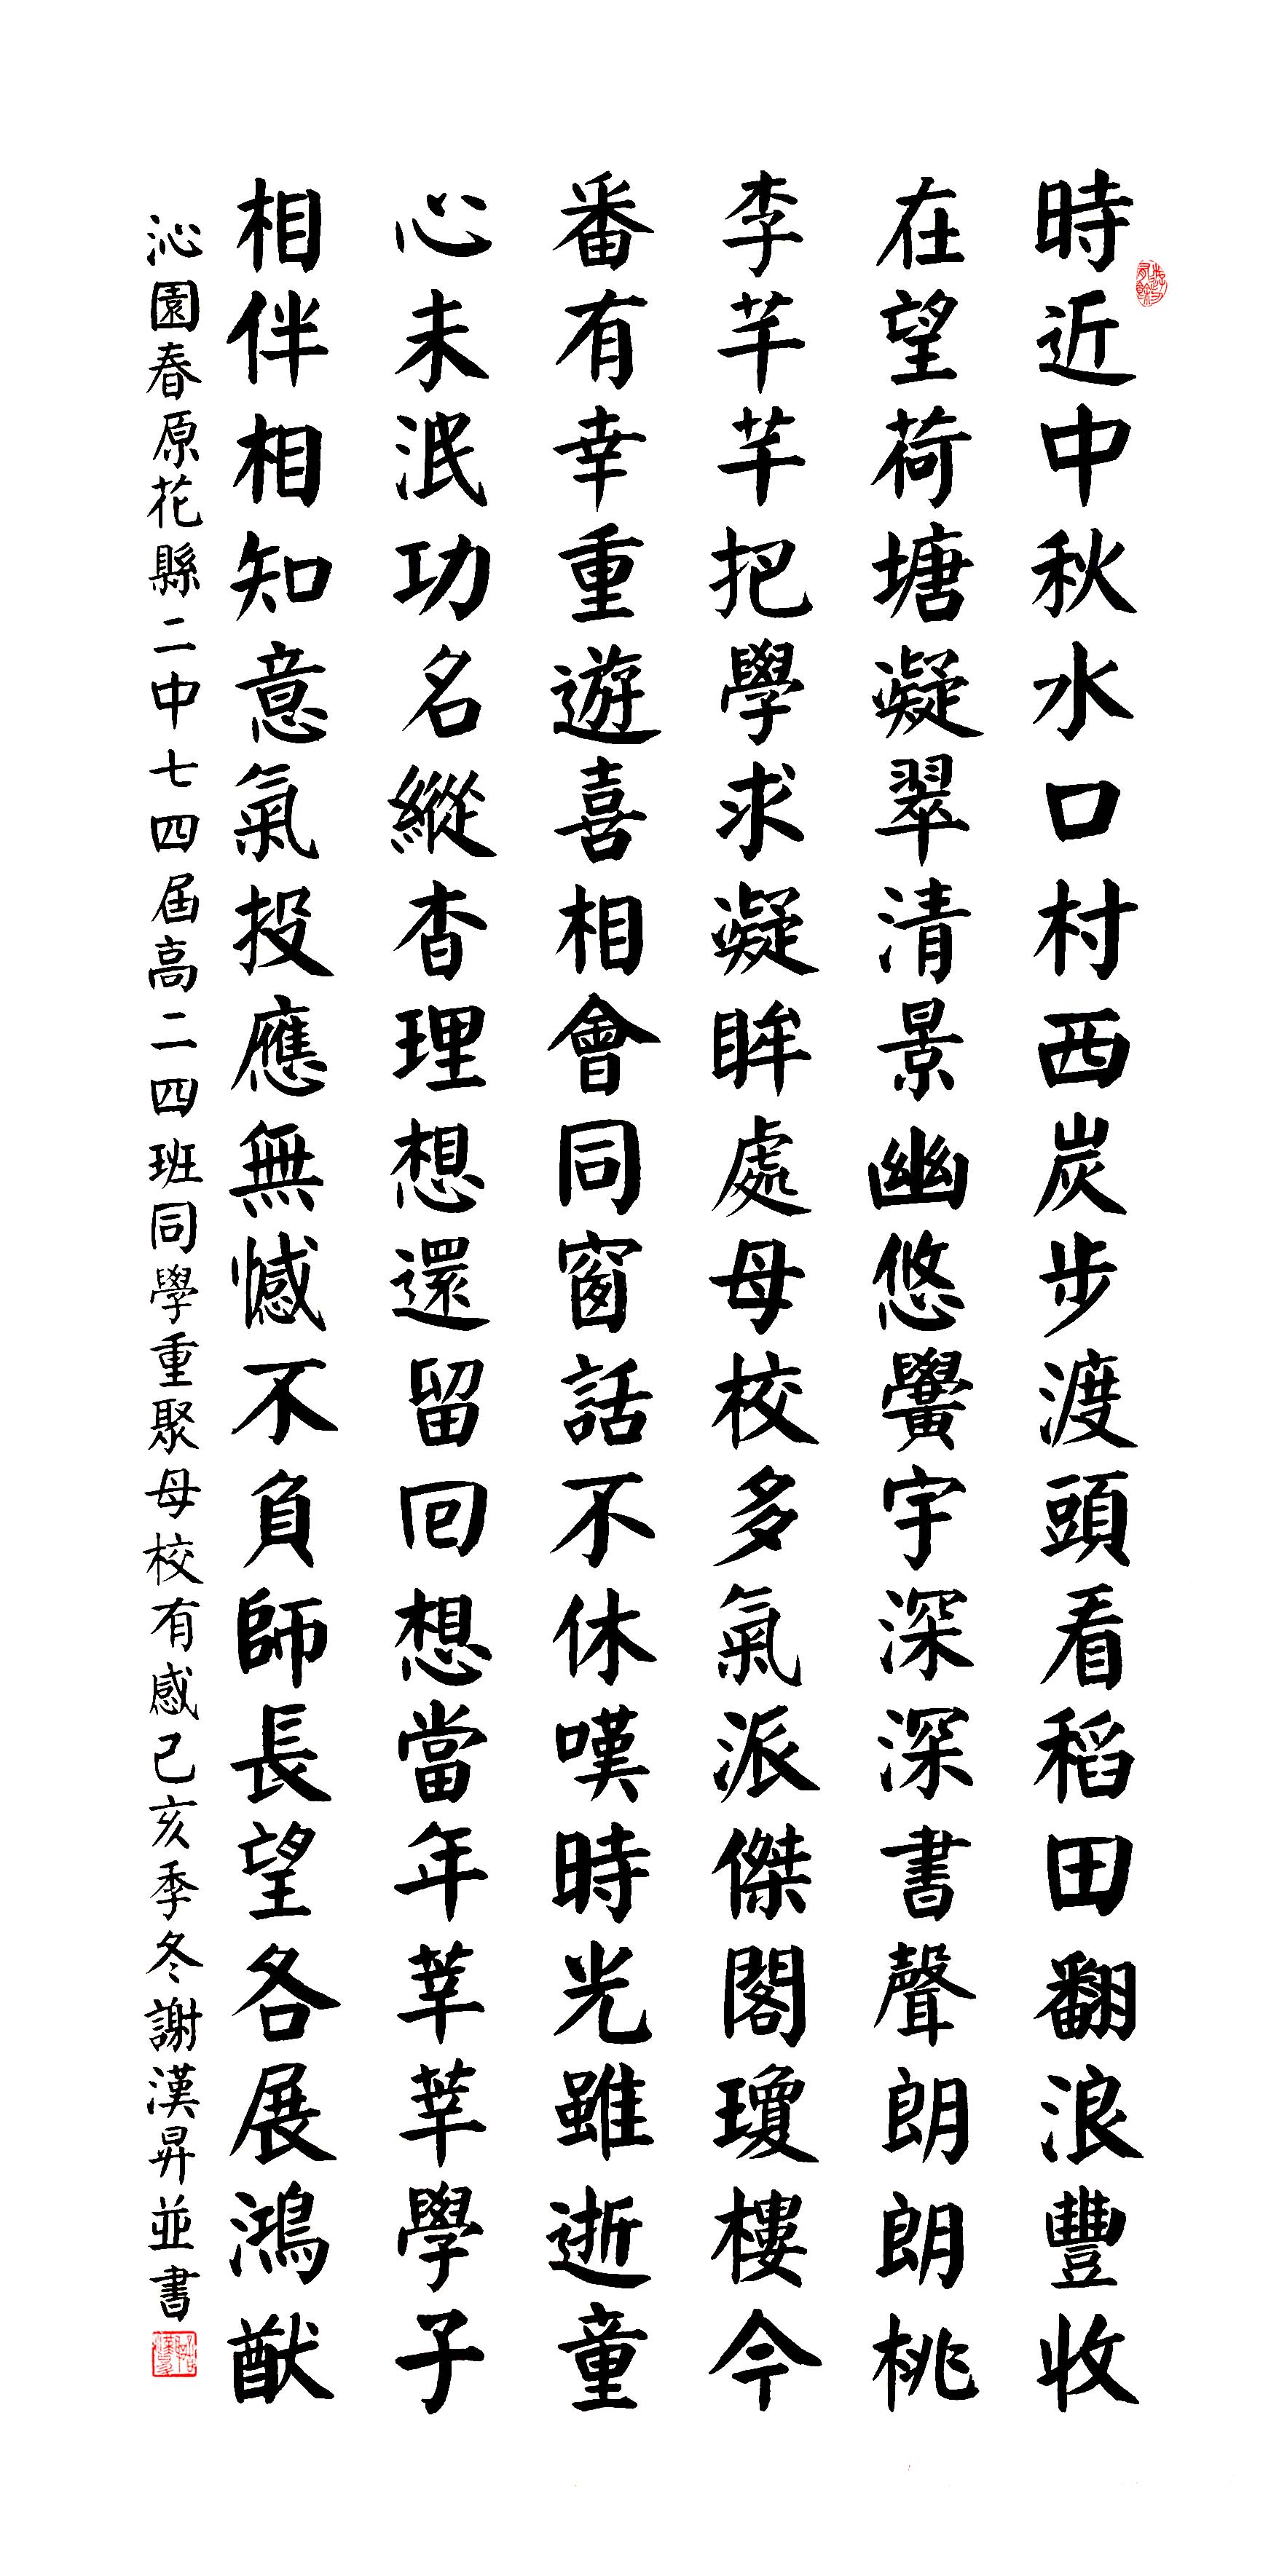 時近中秋水口村西炭步渡頭看稻田翻浪豐收
在望荷塘凝翠清景幽悠黌宇深深書聲朗朗桃
李芊芊把學求凝眸處母校多氣派傑閣瓊樓今
番有幸重遊喜相會同窗話不休嘆時光雖逝童
心未泯功名縱杳理想還留回想當年莘莘學子
相伴相知意氣投應無憾不負師長望各展鴻猷
沁園春原花縣二中七四屆高二四班同學重聚母校有感己亥季冬謝漢昇並書